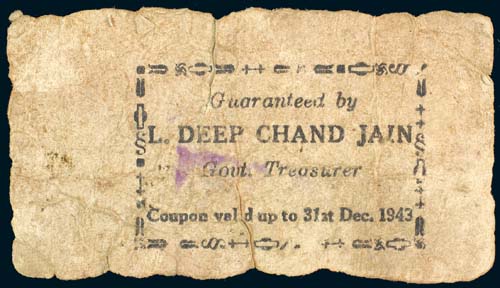 Guaranteed by
L. DEEP CHAND JAIN
Govt. Treasurer
Coupon valid up to 31st Dec. 1943